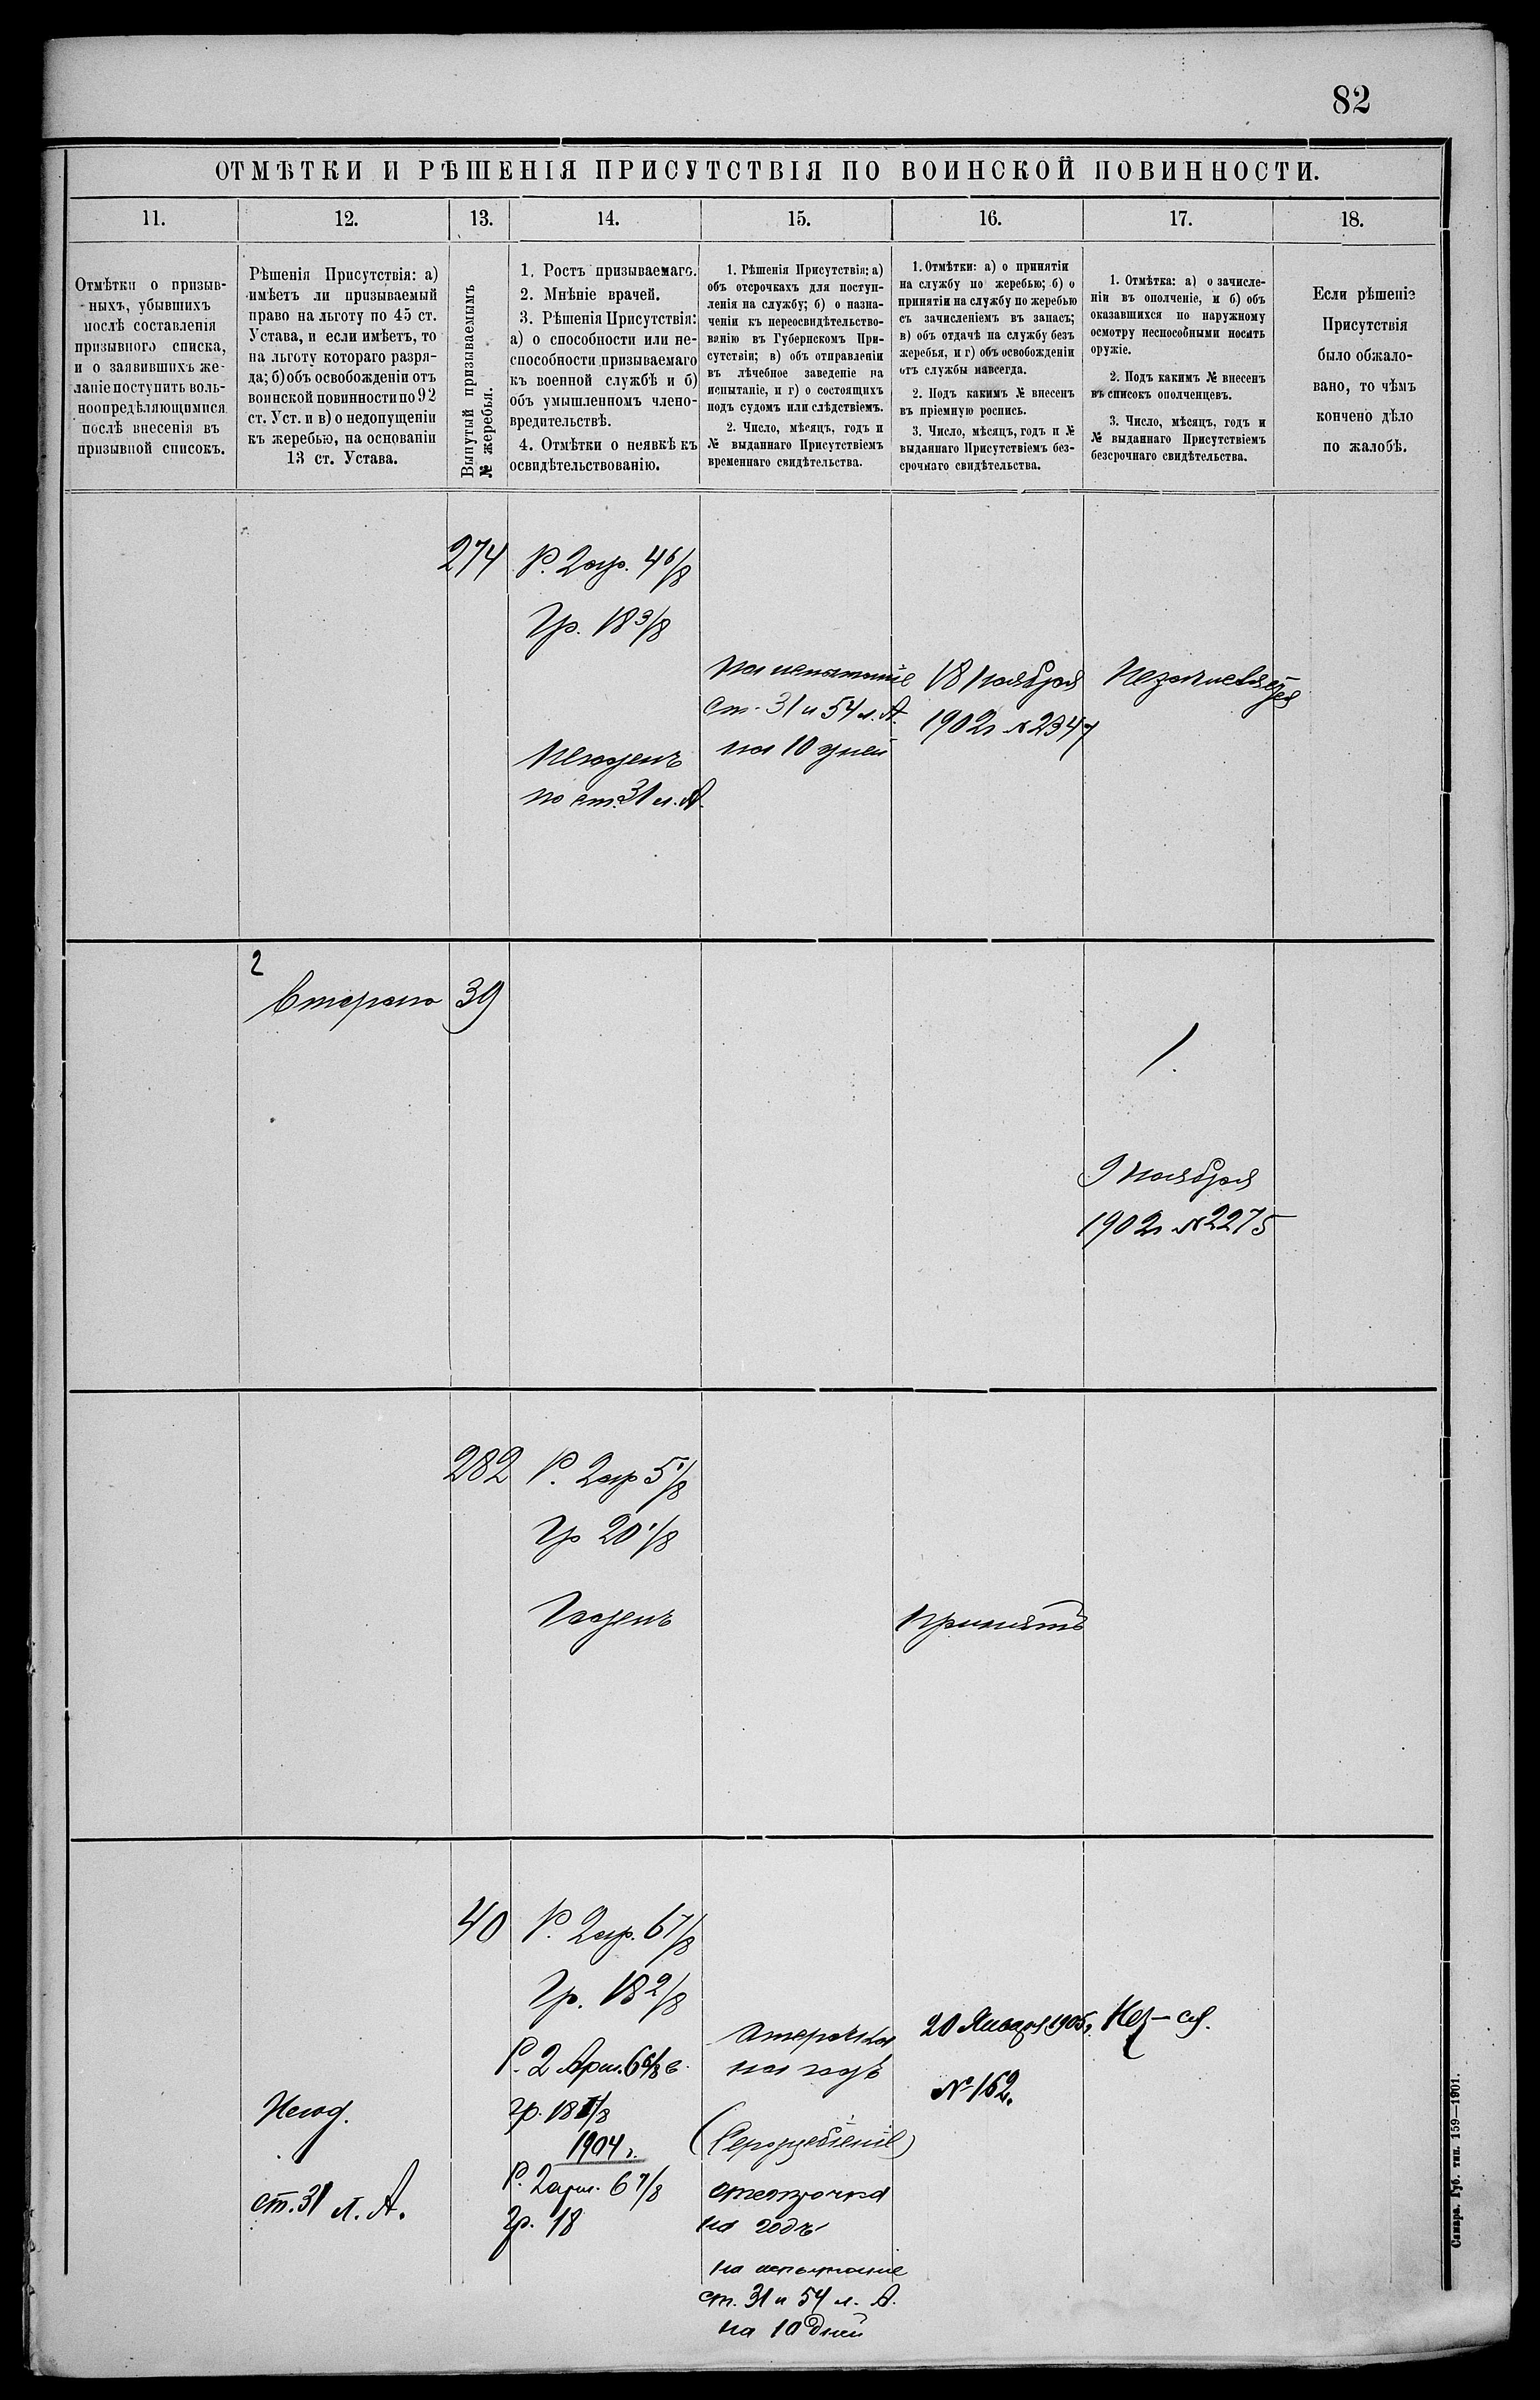 82
ОТМѢТКИ И РѢШЕНІЯ ПРИСУТСТВІЯ ПО ВОИНСКОЙ ПОВИННОСТИ.
11.
12.
13.
14.
15.
16.
17.
18.
Отмѣтки о призыв-
ныхъ, убывшихъ
послѣ составленія
призывного списка,
и о заявившихъ же-
ланіе поступить воль-
ноопредѣляющимися
послѣ внесенія въ
призывной списокъ.
Рѣшенія Присутствія: а)
имѣетъ ли призываемый
право на льготу по 45 ст.
Устава, и если имѣетъ, то
на льготу котораго разря-
да; б) объ освобожденіи отъ
воинской повинности по 92
ст. Уст. и в) о недопущеніи
къ жеребью, на основаніи
13 ст. Устава.
Вынутый призываемымъ
№ жеребья.
1. Ростъ призываемаго.
2. Мнѣніе врачей.
3. Рѣшенія Присутствія:
а) о способности или не-
способности призываемаго
къ военной службѣ и б)
объ умышленномъ члено-
вредительствѣ.
4. Отмѣтки о неявкѣ къ
освидѣтельствованію.
1. Рѣшенія Присутствія; а)
объ отсрочкахъ для поступ-
ленія на службу; б) о назна-
ченіи къ переосвидѣтельство-
ванію въ Губернскомъ При-
сутствіи; в) объ отправленіи
въ лѣчебное заведеніе на
испытаніе, и г) о состоящихъ
подъ судомъ или слѣдствіемъ.
2. Число, мѣсяцъ, годъ и
№ выданнаго Присутствіемъ
временнаго свидѣтельства.
1. Отмѣтки: а) о принятіи
на службу по жеребью; б) о
принятіи на службу по жеребью
съ зачисленіемъ въ запасъ;
в) объ отдачѣ на службу безъ
жеребья, и г) объ освобожденіи
отъ службы навсегда.
2. Подъ какимъ № внесенъ
въ пріемную роспись.
3. Число, мѣсяцъ, годъ и №
выданнаго Присутствіемъ без-
срочнаго свидѣтельства.
1. Отмѣтка: а) о зачисле-
ніи въ ополченіе, и б) объ
оказавшихся по наружному
осмотру неспособными носить
оружіе.
2. Подъ какимъ № внесенъ
въ списокъ ополченцевъ.
3. Число, мѣсяцъ, годъ и
№ выданнаго Присутствіемъ
безсрочнаго свидѣтельства.
Если рѣшеніе
Присутствія
было обжало-
вано, то чѣмъ
кончено дѣло
по жалобѣ.
274
Р. 2 ар. 4 6/8
Гр. 18 3/8
Негоденъ
по ст. 31 л. А.
На испытаніе
ст. 31 и 54 л. А.
на 10 дней
18 Ноября
1902 г №2347
Незачисляется
2
Второго
39
1.
9 Ноября
1902 г №2275
282
Р. 2 ар 5 1/8
Гр 20 1/8
Годенъ
Принятъ
40
Р. 2 ар. 6 7/8
Гр. 18 2/8
Р. 2 Арш. 6 6/8 в.
гр. 18 1/8
1904 г.
Р. 2 арш. 6 7/8
Гр. 18
Негод.
ст. 31 л. А.
Отсрочка
на годъ
отсрочка
на годъ
на испытаніе
ст. 31 и 54 л. А.
на 10 дней
20 Января 1905 г.
№ 152.
Нез-ся.
Самара. Губ. тип. 159—1901.